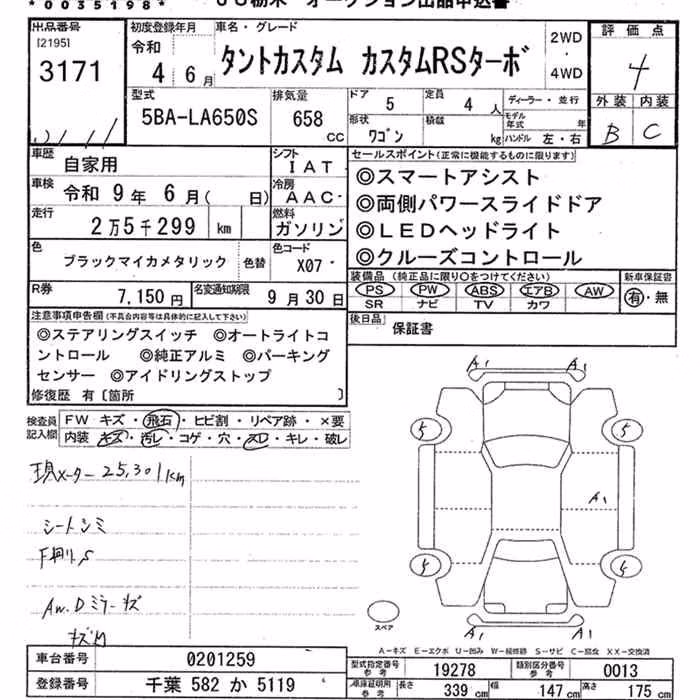 *0035198* ＪＵ栃木 オークション出品申込書
出品番号 [2195] 3171
初度登録年月 令和 4年 6月
車名・グレード タントカスタム カスタムRSターボ 2WD・4WD
評価点 4
外装 B 内装 C
型式 5BA-LA650S
排気量 658 CC
ドア 5 定員 4人 ディーラー・並行
形状 ワゴン 積載 kg モデル年式 年 ハンドル 左・右
車歴 自家用
シフト IAT
車検 令和 9年 6月( 日)
冷房 AAC
走行 2万5千299 km
燃料 ガソリン
色 ブラックマイカメタリック 色替
色コード X07
R券 7,150円 名変通知期限 9月30日
セールスポイント(正常に機能するものに限ります)
◎スマートアシスト
◎両側パワースライドドア
◎ＬＥＤヘッドライト
◎クルーズコントロール
装備品(純正品に限り○をつけてください) 新車保証書
PS PW ABS エアB AW 有・無
SR ナビ TV カワ
後日品 保証書
注意事項申告欄(不具合内容等は具体的に記入して下さい)
◎ステアリングスイッチ ◎オートライトコ
ントロール ◎純正アルミ ◎パーキング
センサー ◎アイドリングストップ
修復歴 有〔箇所 〕
検査員記入欄
FW キズ・飛石・ヒビ割・リペア跡・×要
内装 キズ・汚レ・コゲ・穴・スレ・キレ・破レ
現メーター 25,301km
シートシミ
Aw.Dミラーキズ
A1 A1
5 5
A1
5 5
A1 A1
スペア
A－キズ E－エクボ U－凹み W－補修跡 S－サビ C－腐食 XX－交換済
車台番号 0201259
登録番号 千葉 582 か 5119
型式指定番号 参考 19278 類別区分番号 参考 0013
車庫証明用 参考 長さ 339cm 幅 147cm 高さ 175cm